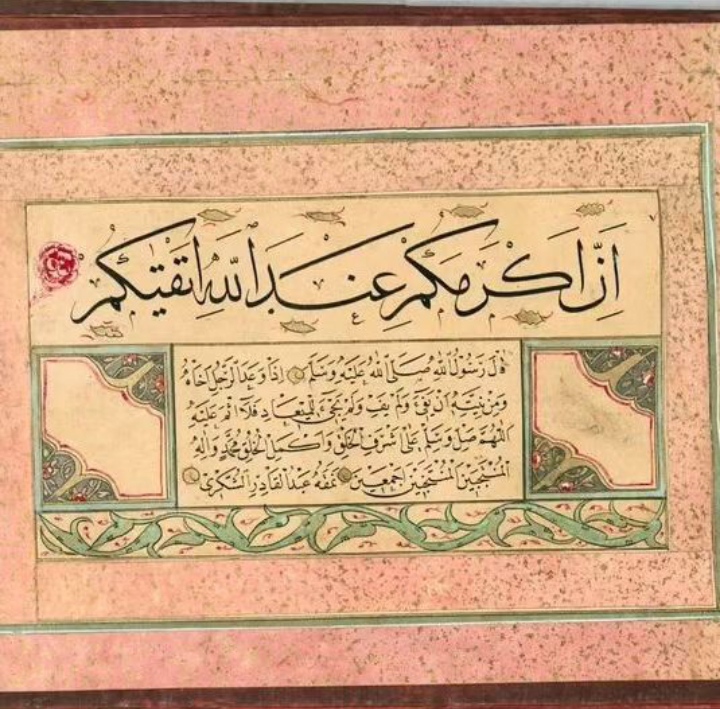 اَنَّ اَكْرَمَكُمْ عِنْدَ اللّٰهِ اَتْقٰيكُمْ
قال رَسُولُ اللّٰهِ صَلَّى اللّٰهُ عَلَيْهِ وَسَلَّمَ اِذَا وَعَدَ الرَّجُلُ اَخَاهُ
وَمِنْ نِيَّتِهِ اَنْ يَفِيَ وَلَمْ يَفِ وَلَمْ يَجِئْ لِلْمِيعَادِ فَلَا اِثْمَ عَلَيْهِ
اللّٰهُمَّ صَلِّ وَسَلِّمْ عَلَى اَشْرَفِ الْخَلْقِ وَاَكْمَلِ الْخَلْقِ مُحَمَّدٍ وَاٰلِهِ
اَجْمَعِينَ نَمَقَهُ عَبْدُ الْقَادِرِ الشُّكْرِى